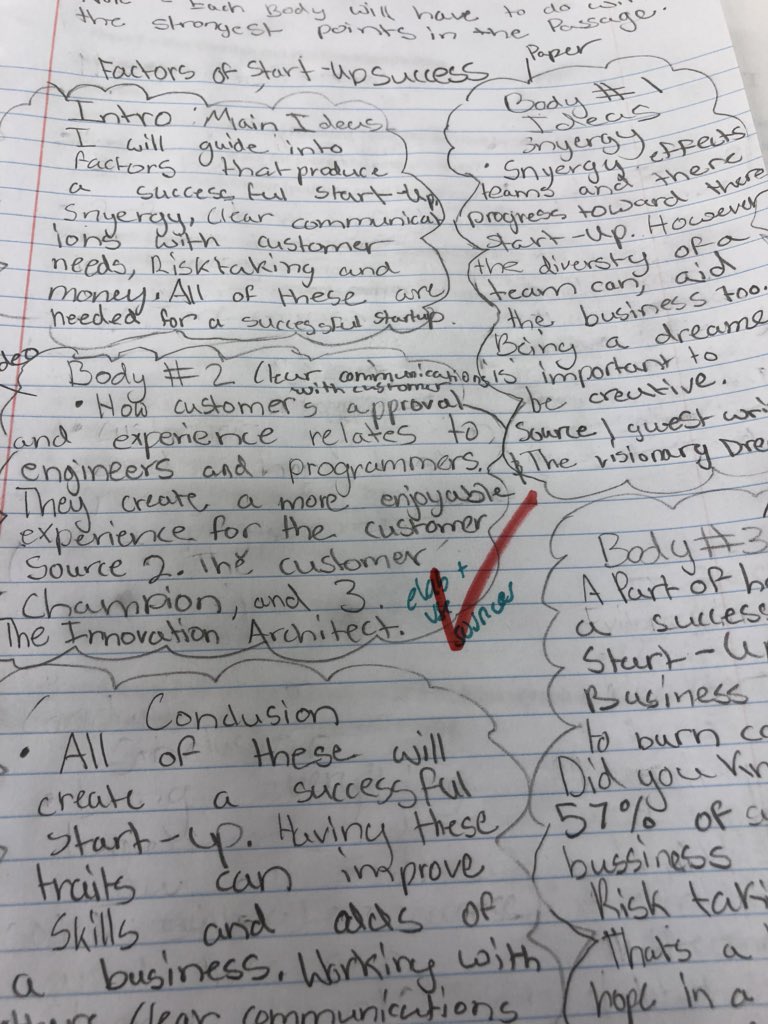 Each Body will have to do
the strongest points in the Passage.
Factors of Start-Up success
Paper
Intro: Main Ideas
I will guide into
factors that produce
a successful start-up,
Snyergy, Clear communicat
ions with customer
needs, Risktaking and
money. All of these are
needed for a successful startup.
Body #1
Ideas
Snyergy
• Snyergy effects
teams and there
progress toward there
start-up. However
the diversty of a
team can, aid
the business too.
Being a dreame
is important to
be creative.
Source 1 guest wri
The visionary Dre
Body #2 Clear communications
with customer
• How customer's approval
and experience relates to
engineers and programmers.
They create a more enjoyable
experience for the customer
Source 2. The customer
Champion, and 3.
The Innovation Architect.
elab +
sources
Body #3
A Part of b
a success
Start-Up
Business
to burn co
Did you Kn
57% of s
bussiness
Risk taki
Thats a
hope in a
Conclusion
• All of these will
create a successful
start-up. Having these
traits can improve
skills and odds of
a business. Working with
Clear communications